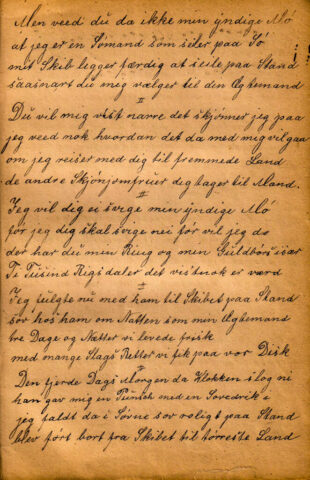 Men veed du da ikke min yndige Mö
at jeg er en Sömand som siler paa Sö
mit Skib legger færdeg at seile paa Stand
saasnart du mig vælger til den Ægtemand
II
Du vil mig vist narre det skjönner jeg paa
jeg veed nok hvordan det da med mig vil gaa
om jeg reiser med dig til fremmede Land
de andre Skjönjomfruer dig tager til Mand.
III
Jeg vil dig ei svige min yndige Mö
før jeg dig skal svige nei för vil jeg dö
der har du min Ring og min Guldbör især
Ti Tusind Rigsdaler det vist nok er værd
Jeg fulgte nu med ham til Skibet paa Stand
sov hos ham om Natten som min Ægtemand
tre Dage og Nætter vi levede frisk
med mange Slags Retter vi fik paa vor Disk
Den fjerde Dags Morgen da Klokken slog ni
han gav mig en Punsch med en Sovedrik i
jeg faldt da i Sövne sov roligt paa Stand
blev fört bort fra Skibet til törreste Land